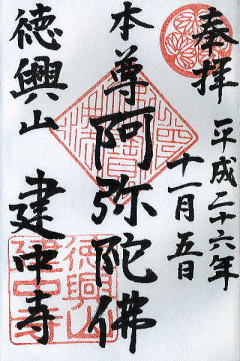 奉拝
平成二十六年
十一月五日
本尊 阿弥陀佛
徳興山 建中寺
徳興山
建中寺